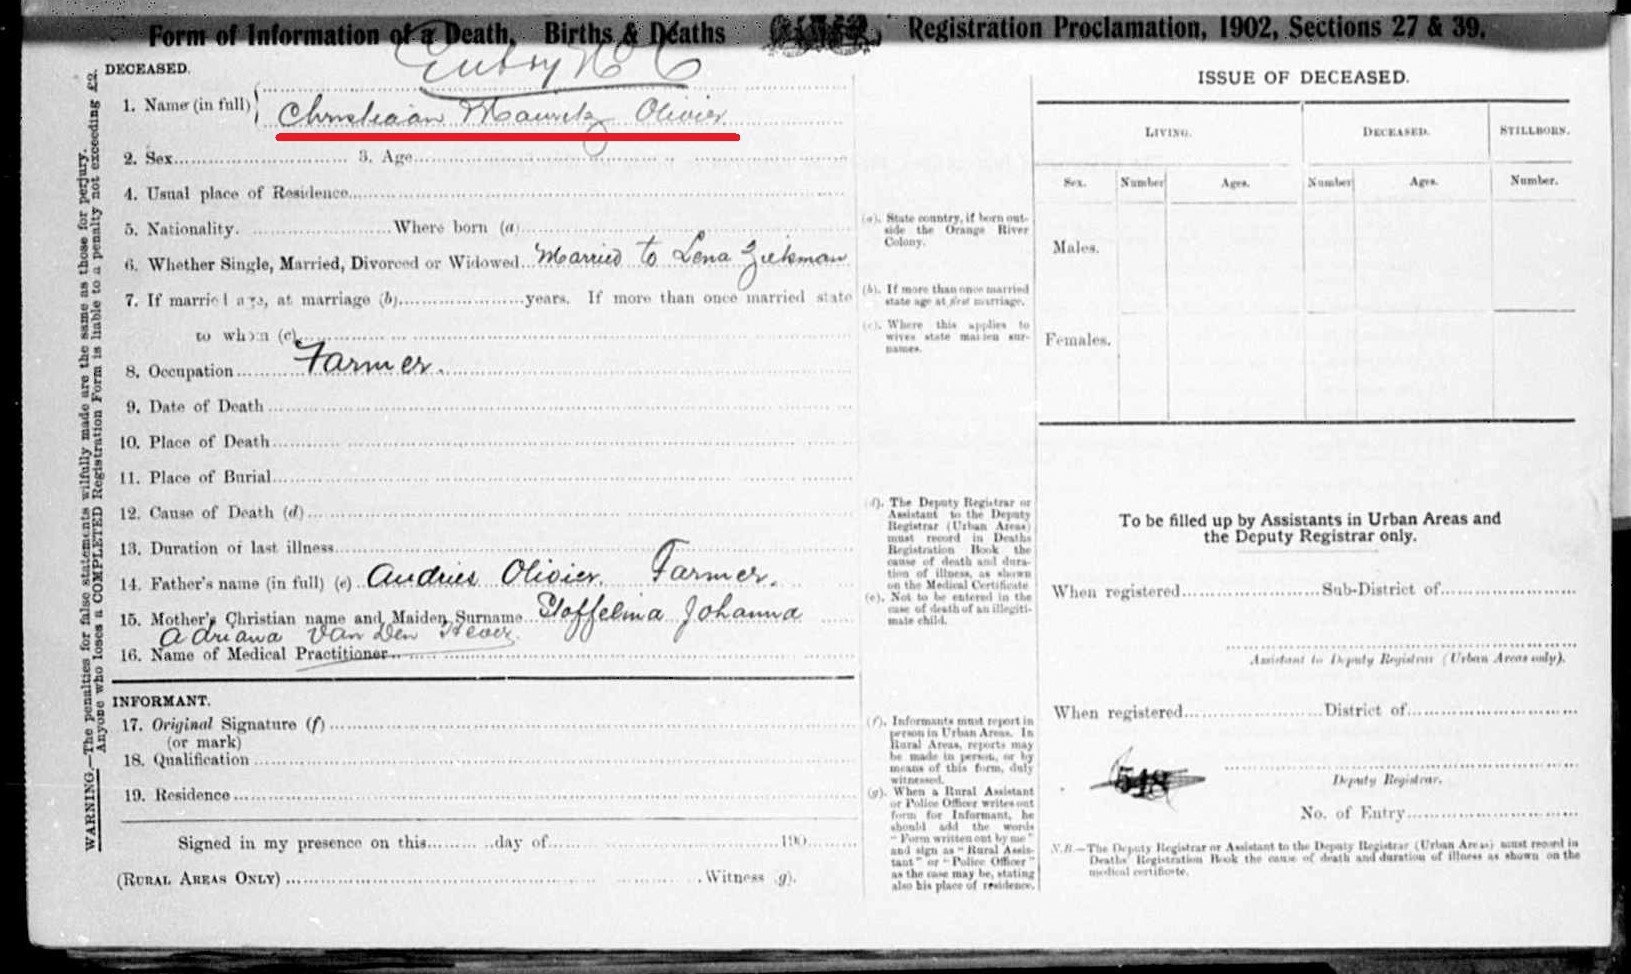 Form of Information of a Death, Births & Deaths Registration Proclamation, 1902, Sections 27 & 39.
WARNING.—The penalties for false statements wilfully made are the same as those for perjury.
Anyone who loses a COMPLETED Registration Form is liable to a penalty not exceeding £2.
DECEASED.
Entry No
1. Name (in full) Christiaan Mauritz Olivier
2. Sex 3. Age
4. Usual place of Residence
5. Nationality. Where born (a)
6. Whether Single, Married, Divorced or Widowed Married to Lena Ziekman
7. If married age, at marriage (b) years. If more than once married state
to whom (c)
8. Occupation Farmer.
9. Date of Death
10. Place of Death
11. Place of Burial
12. Cause of Death (d)
13. Duration of last illness
14. Father's name (in full) (e) Andries Olivier. Farmer.
15. Mother's Christian name and Maiden Surname Stoffelina Johanna
Adriana Van Den Heever.
16. Name of Medical Practitioner
INFORMANT.
17. Original Signature (f)
(or mark)
18. Qualification
19. Residence
Signed in my presence on this day of 190
(RURAL AREAS ONLY) Witness g).
(a). State country, if born out-
side the Orange River
Colony.
(b). If more than once married
state age at first marriage.
(c). Where this applies to
wives state maiden sur-
names.
(d). The Deputy Registrar or
Assistant to the Deputy
Registrar (Urban Areas)
must record in Deaths
Registration Book the
cause of death and dura-
tion of illness, as shown
on the Medical Certificate
(e). Not to be entered in the
case of death of an illegiti-
mate child.
(f). Informants must report in
person in Urban Areas. In
Rural Areas, reports may
be made in person, or by
means of this form, duly
witnessed.
(g). When a Rural Assistant
or Police Officer writes out
form for Informant, he
should add the words
"Form written out by me"
and sign as "Rural Assis-
tant" or "Police Officer"
as the case may be, stating
also his place of residence.
ISSUE OF DECEASED.
LIVING. DECEASED. STILLBORN.
Sex. Number Ages. Number Ages. Number.
Males.
Females.
To be filled up by Assistants in Urban Areas and
the Deputy Registrar only.
When registered Sub-District of
Assistant to Deputy Registrar (Urban Areas only).
When registered District of
548
Deputy Registrar.
No. of Entry
N.B.—The Deputy Registrar or Assistant to the Deputy Registrar (Urban Areas) must record in
Deaths' Registration Book the cause of death and duration of illness as shown on the
medical certificate.